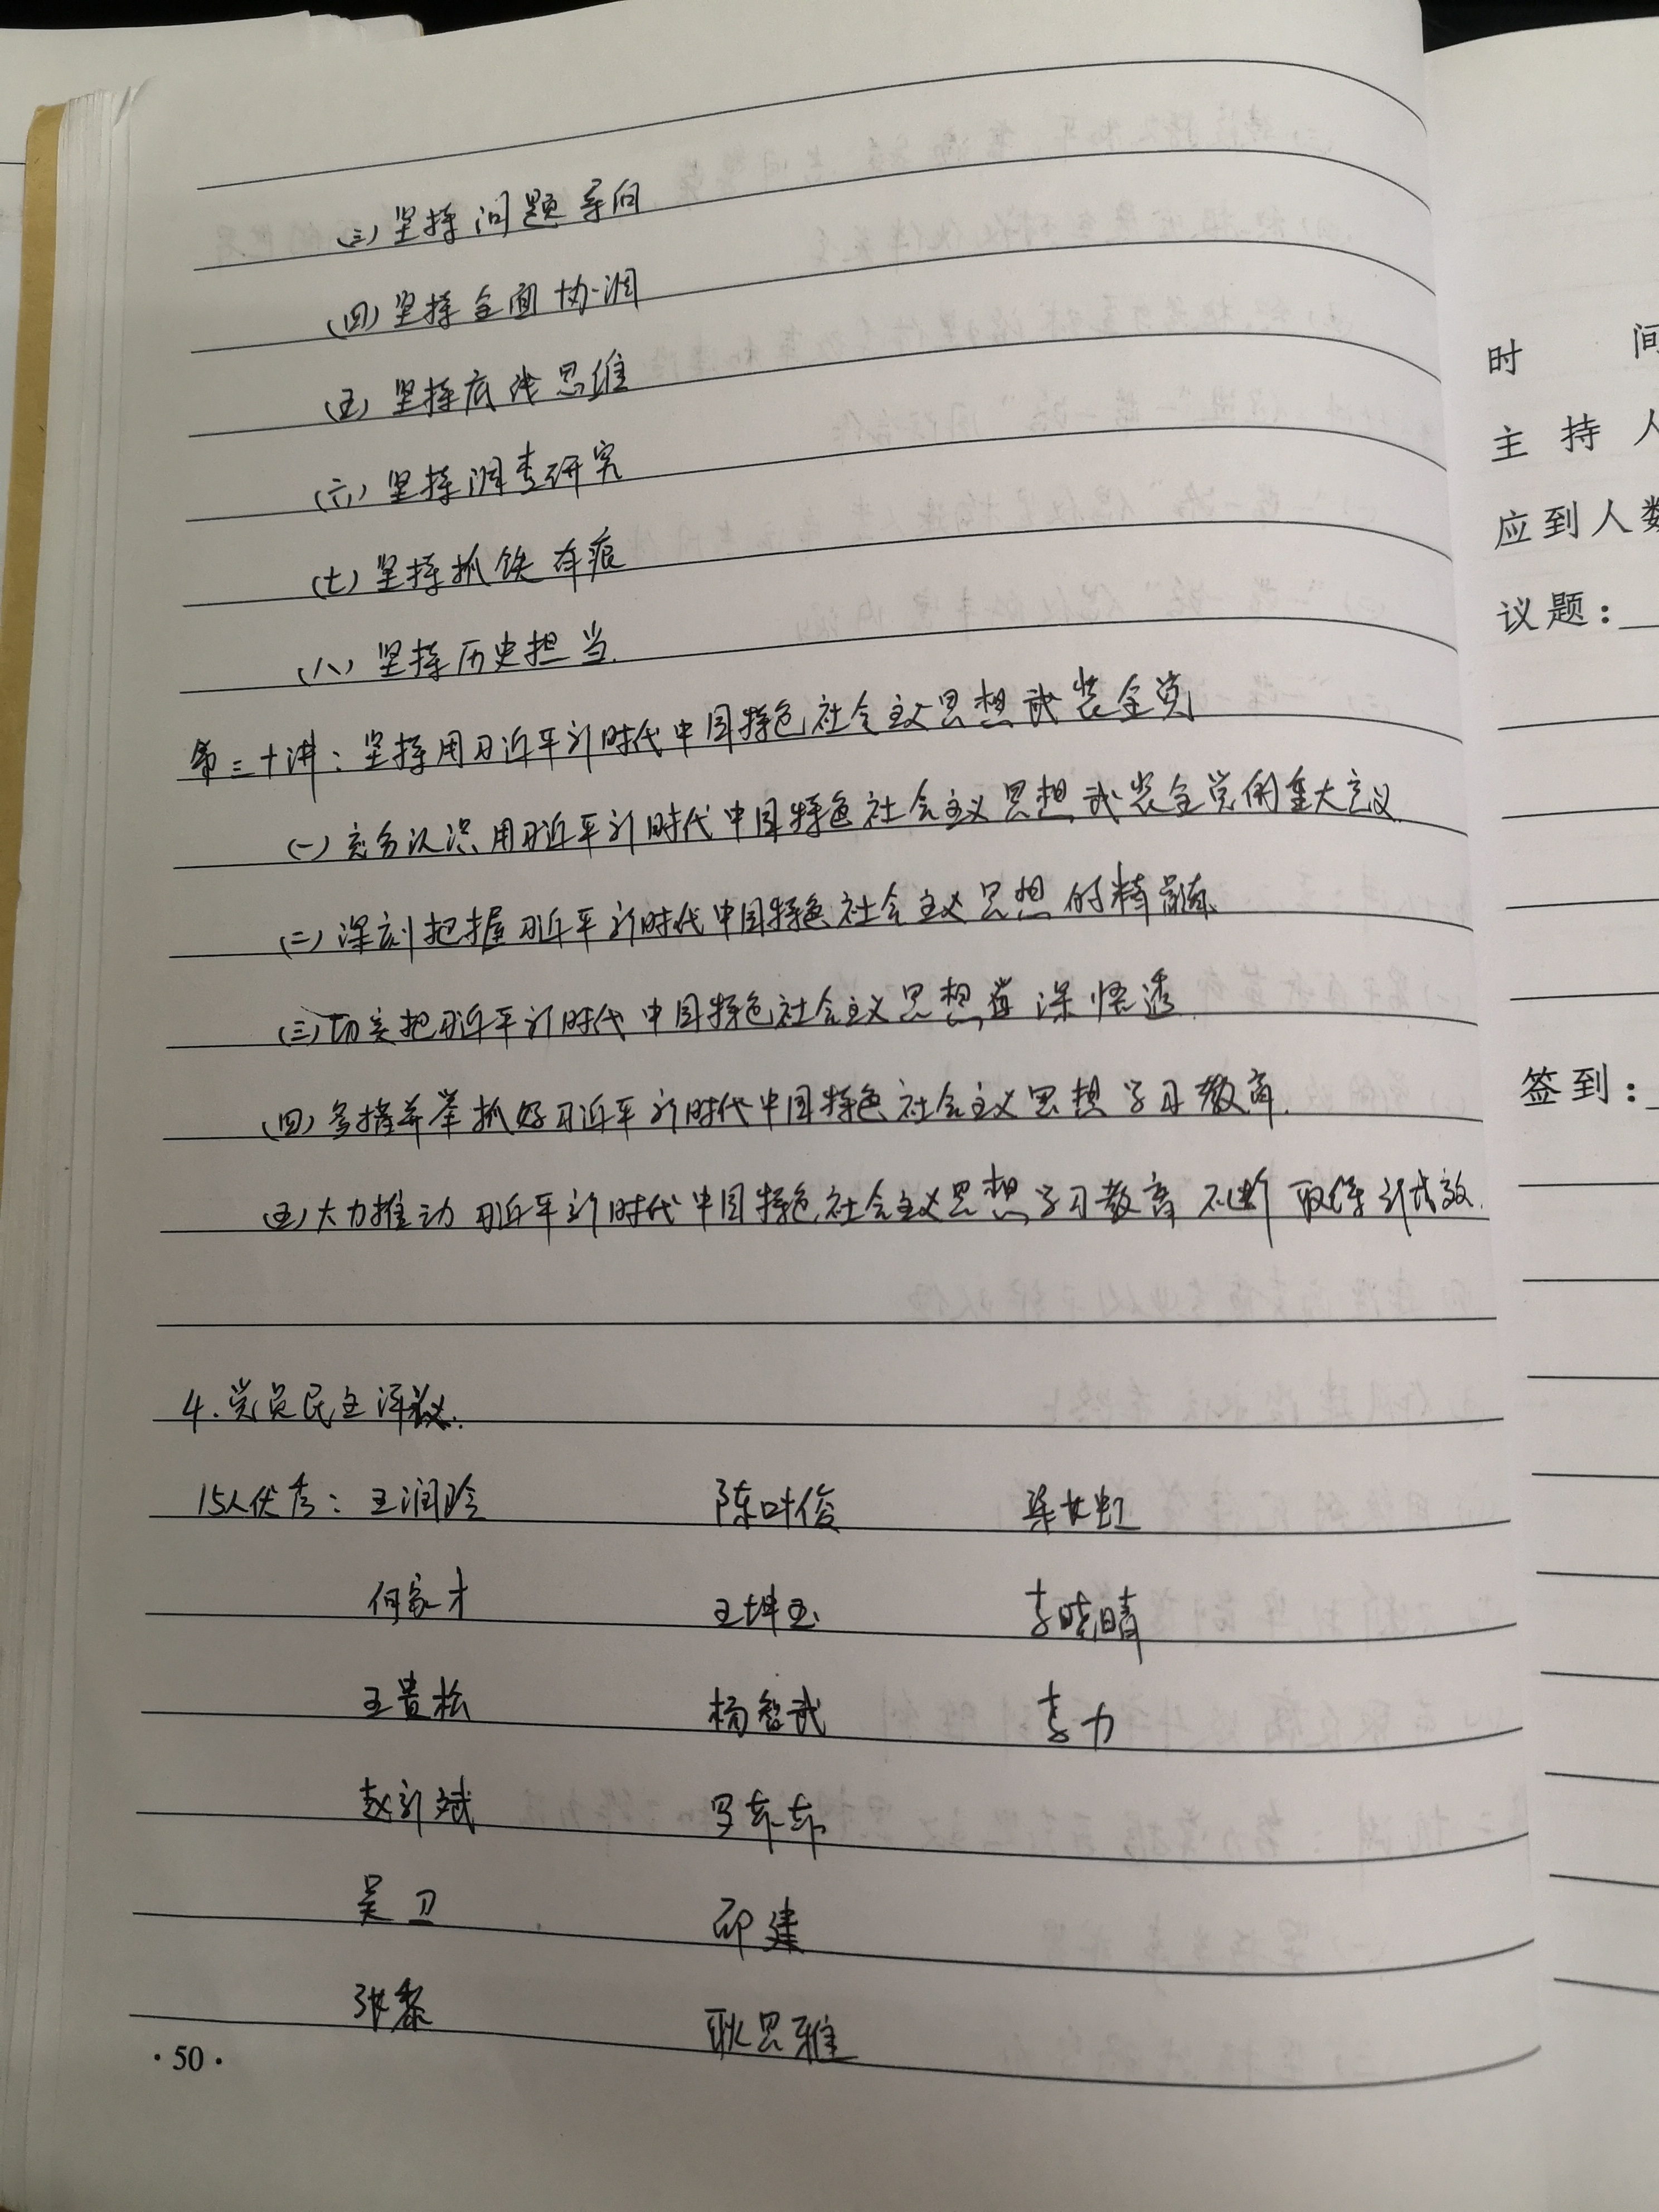 (三)坚持问题导向
(四)坚持全面协调
(五)坚持底线思维
(六)坚持调查研究
(七)坚持抓铁有痕
(八)坚持历史担当.
第三十讲:坚持用习近平新时代中国特色社会主义思想武装全党
(一)充分认识用习近平新时代中国特色社会主义思想武装全党的重大意义.
(二)深刻把握习近平新时代中国特色社会主义思想的精髓.
(三)切实把习近平新时代中国特色社会主义思想学深悟透.
(四)多措并举抓好习近平新时代中国特色社会主义思想学习教育.
(五)大力推动习近平新时代中国特色社会主义思想学习教育不断取得新成效.
4.党员民主评议.
15人优秀:王润玲 陈叶俊 梁女虹
何家才 王坤玉 李晓晴
王贵松 杨智武 李力
赵新斌 罗卉卉
吴卫 邱建
张黎 耿思雅
·50·
时 间
主持人
应到人数
议题:
签到: